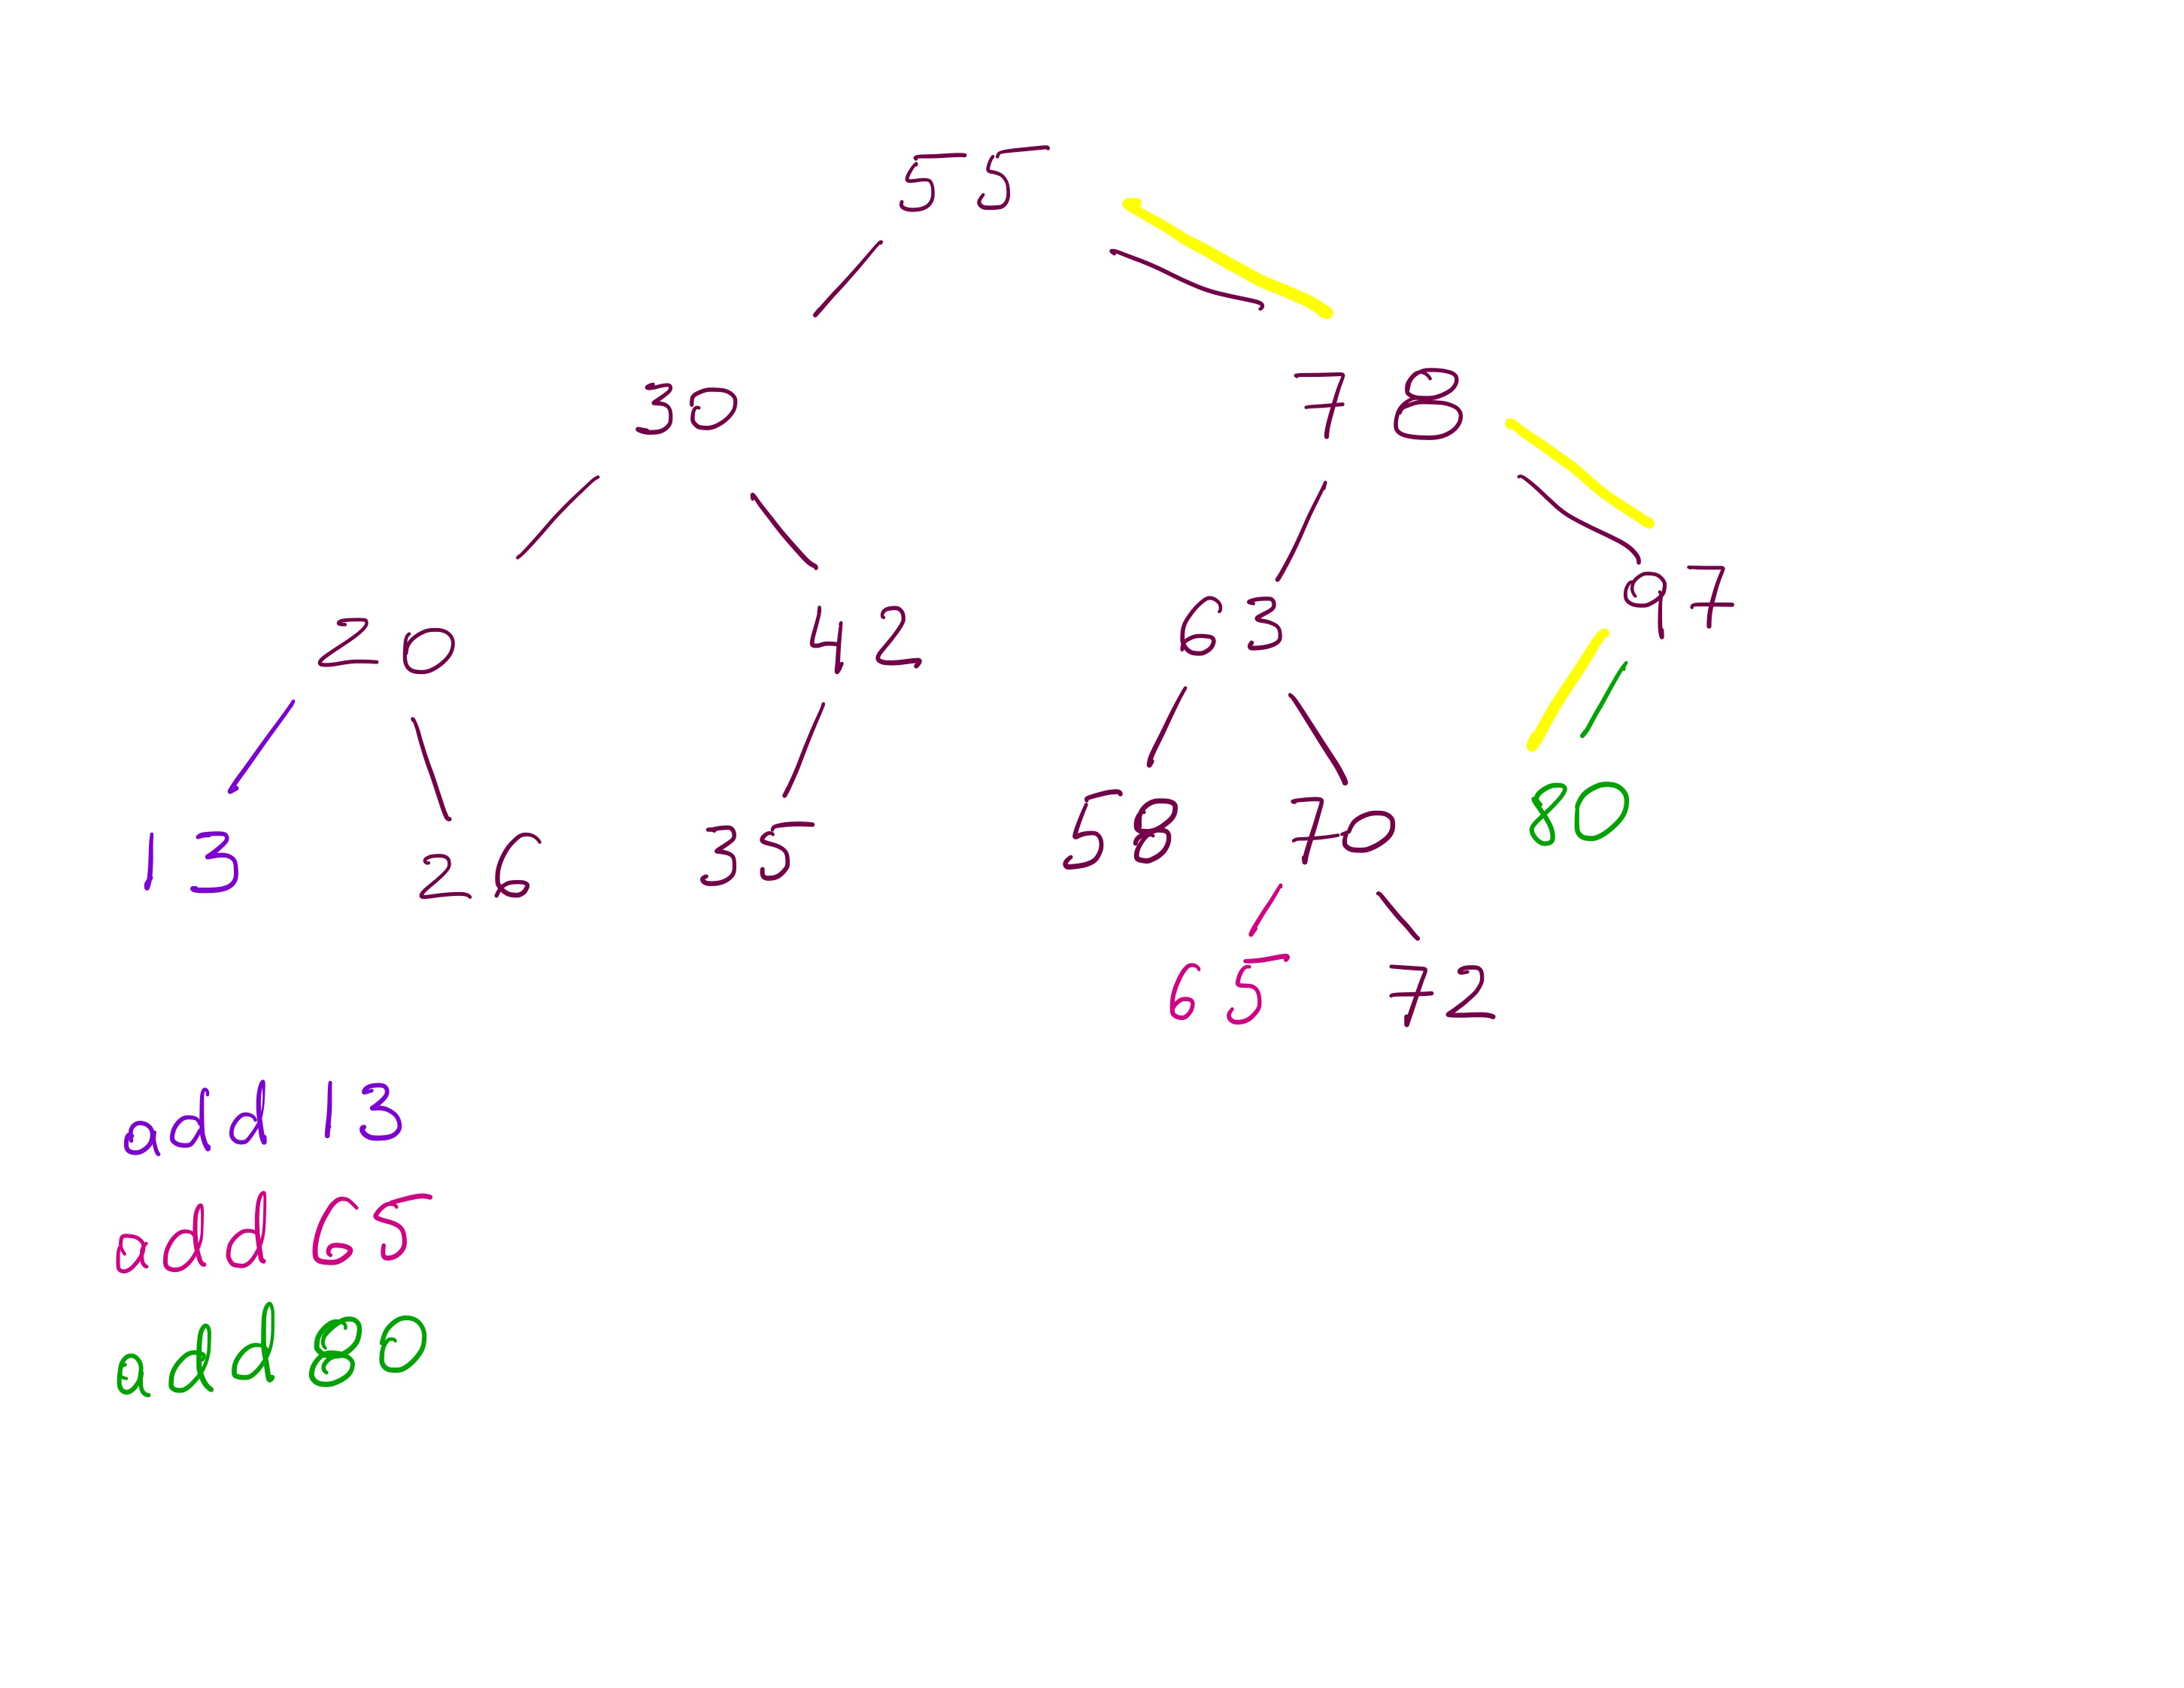 55
30 78
20 42 63 97
13 26 35 58 70 80
65 72
add 13
add 65
add 80